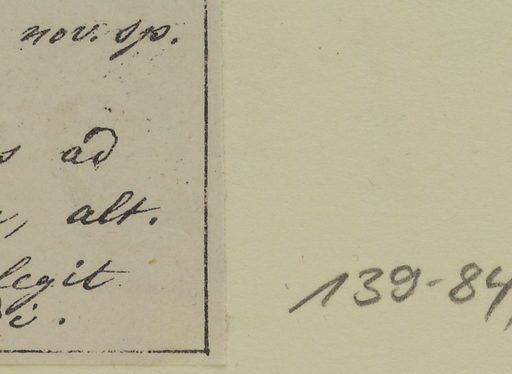 nov. sp.
s ad
, alt.
legit
i.
139-84